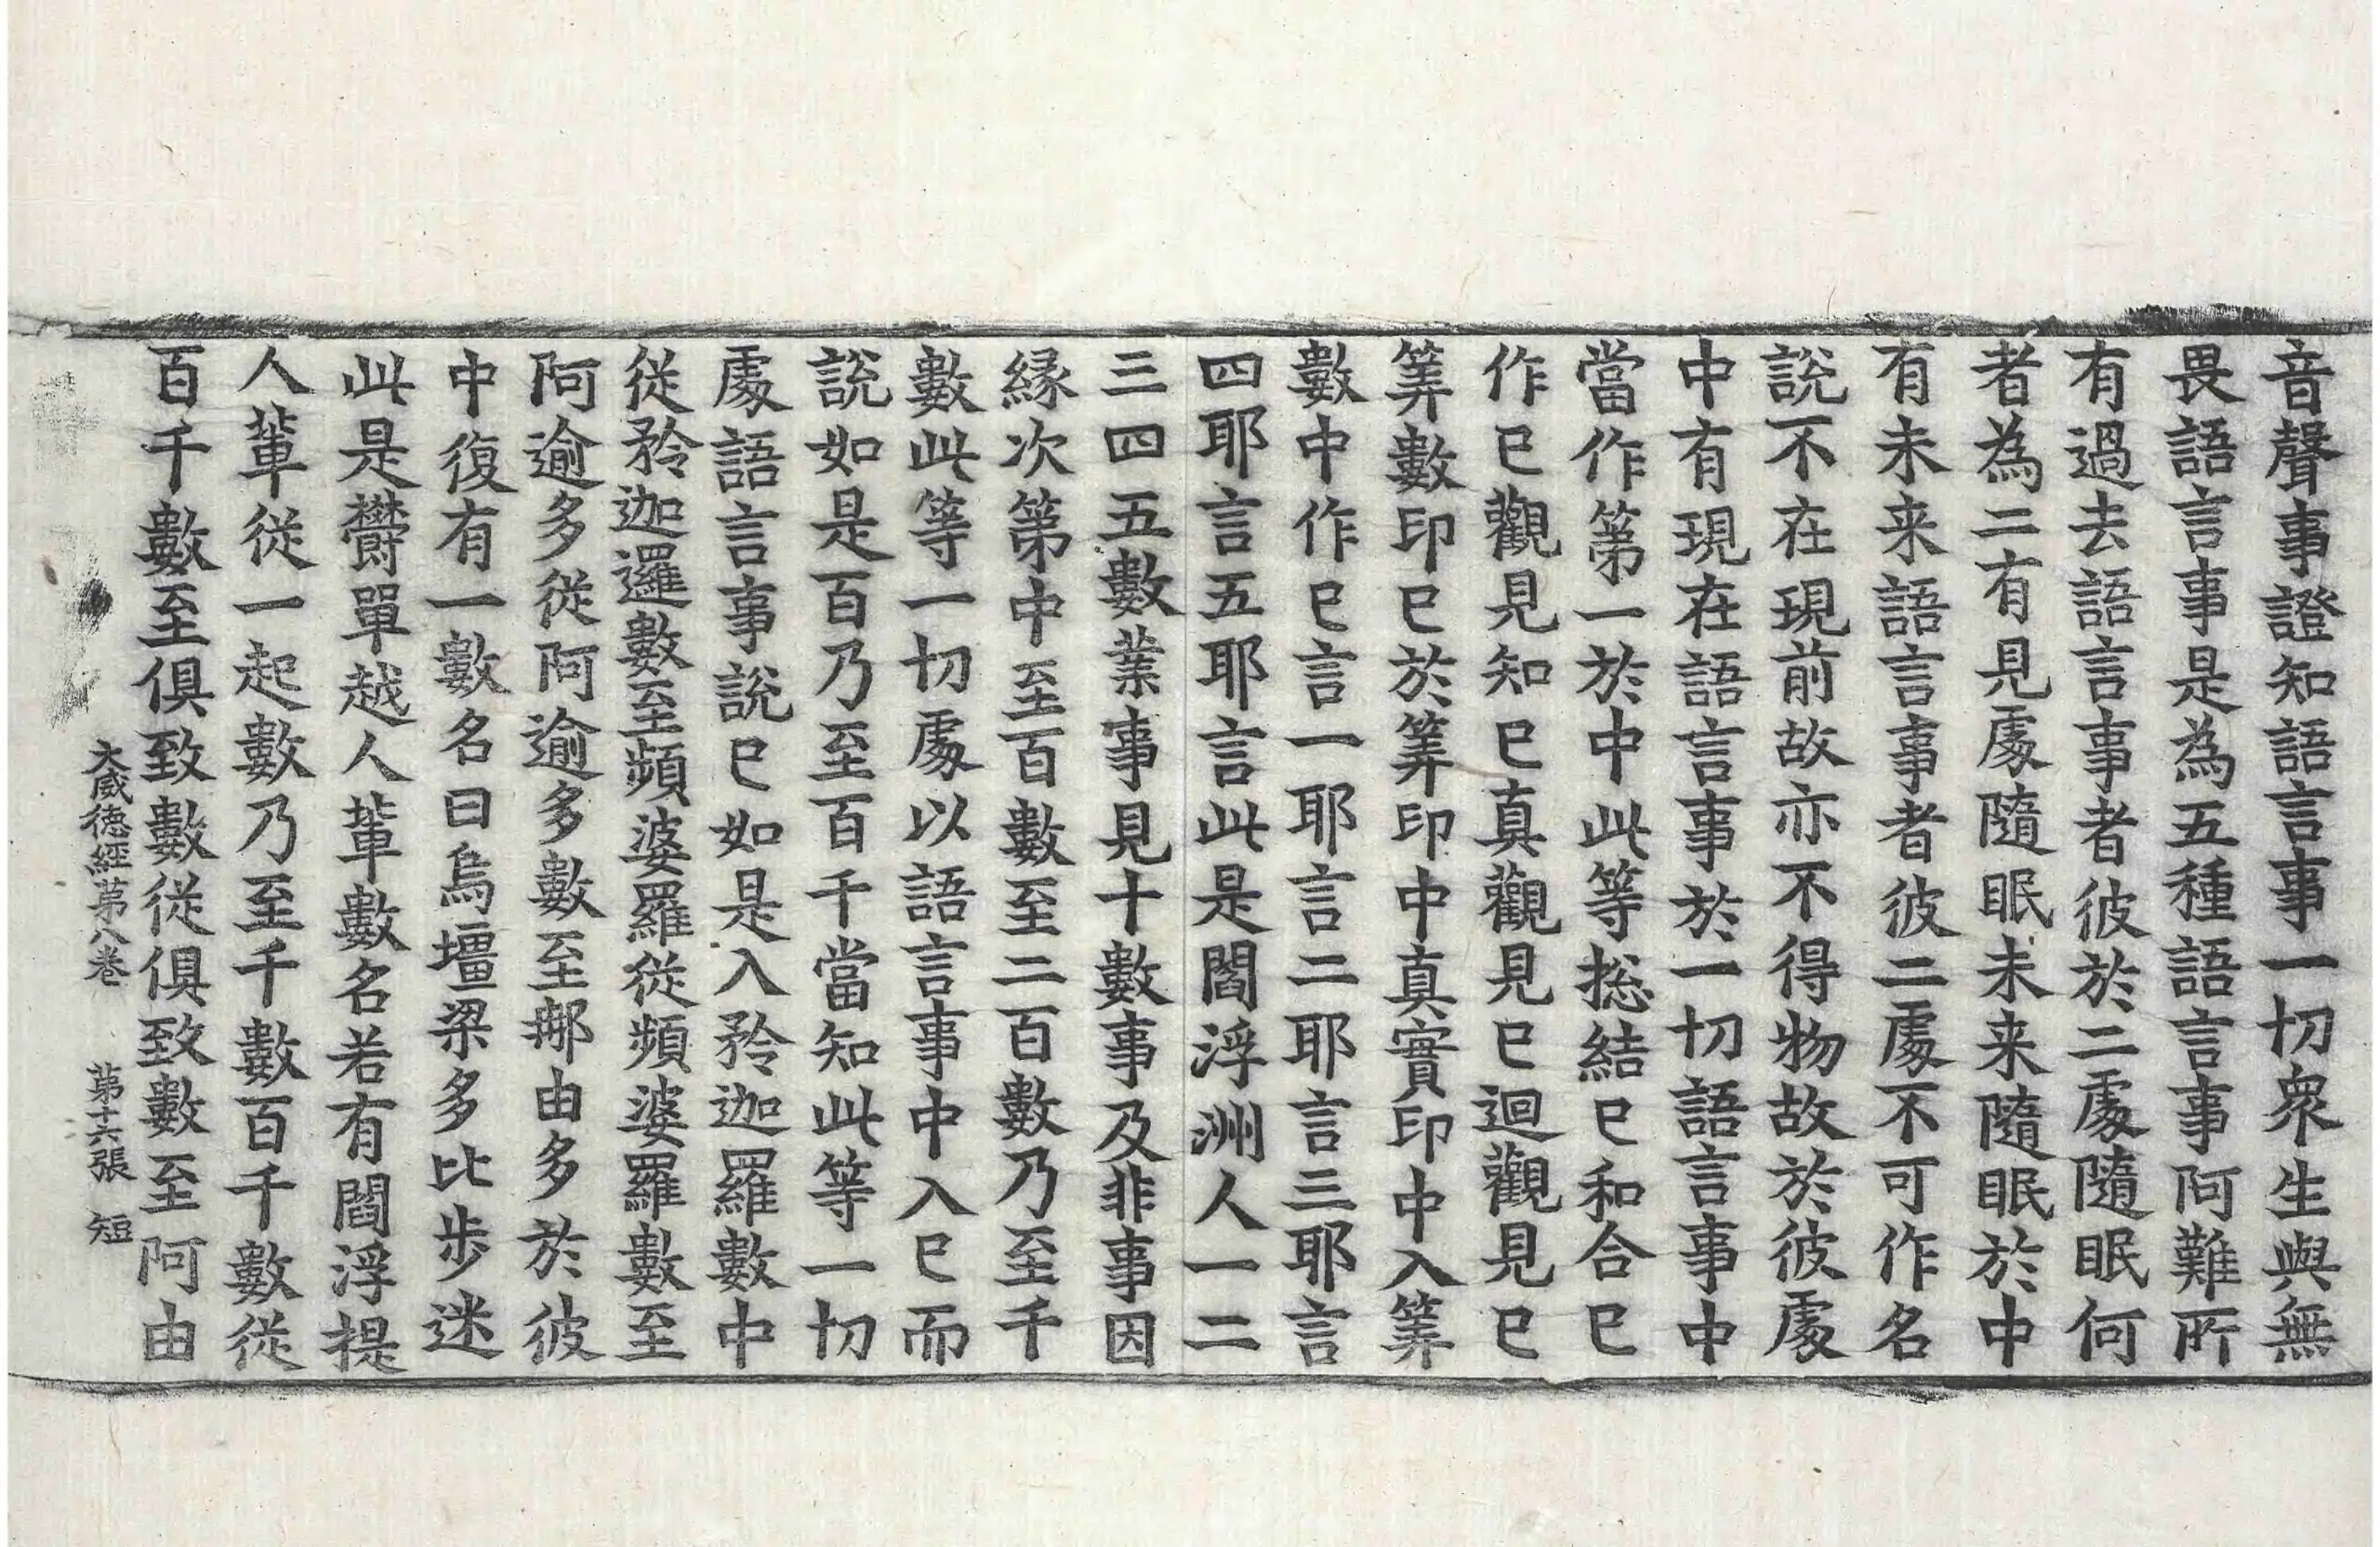 音聲事證知語言事一切衆生與無
畏語言事是為五種語言事阿難所
有過去語言事者彼於二處隨眠何
者為二有見處隨眠未来隨眠於中
有未来語言事者彼二處不可作名
說不在現前故亦不得物故於彼處
中有現在語言事於一切語言事中
當作第一於中此等揔結已和合已
作已觀見知已真觀見已迴觀見已
筭數印已於筭印中真實印中入筭
數中作已言一耶言二耶言三耶言
四耶言五耶言此是閻浮洲人一二
三四五數業事見十數事及非事因
緣次第中至百數至二百數乃至千
數此等一切處以語言事中入已而
說如是百乃至百千當知此等一切
處語言事說已如是入矜迦羅數中
從矜迦邏數至頻婆羅從頻婆羅數至
阿逾多從阿逾多數至那由多於彼
中復有一數名曰烏壃梁多比步迷
此是欝單越人輩數名若有閻浮提
人輩從一起數乃至千數百千數從
百千數至俱致數從俱致數至阿由
大威德經第八卷　第十六張　短